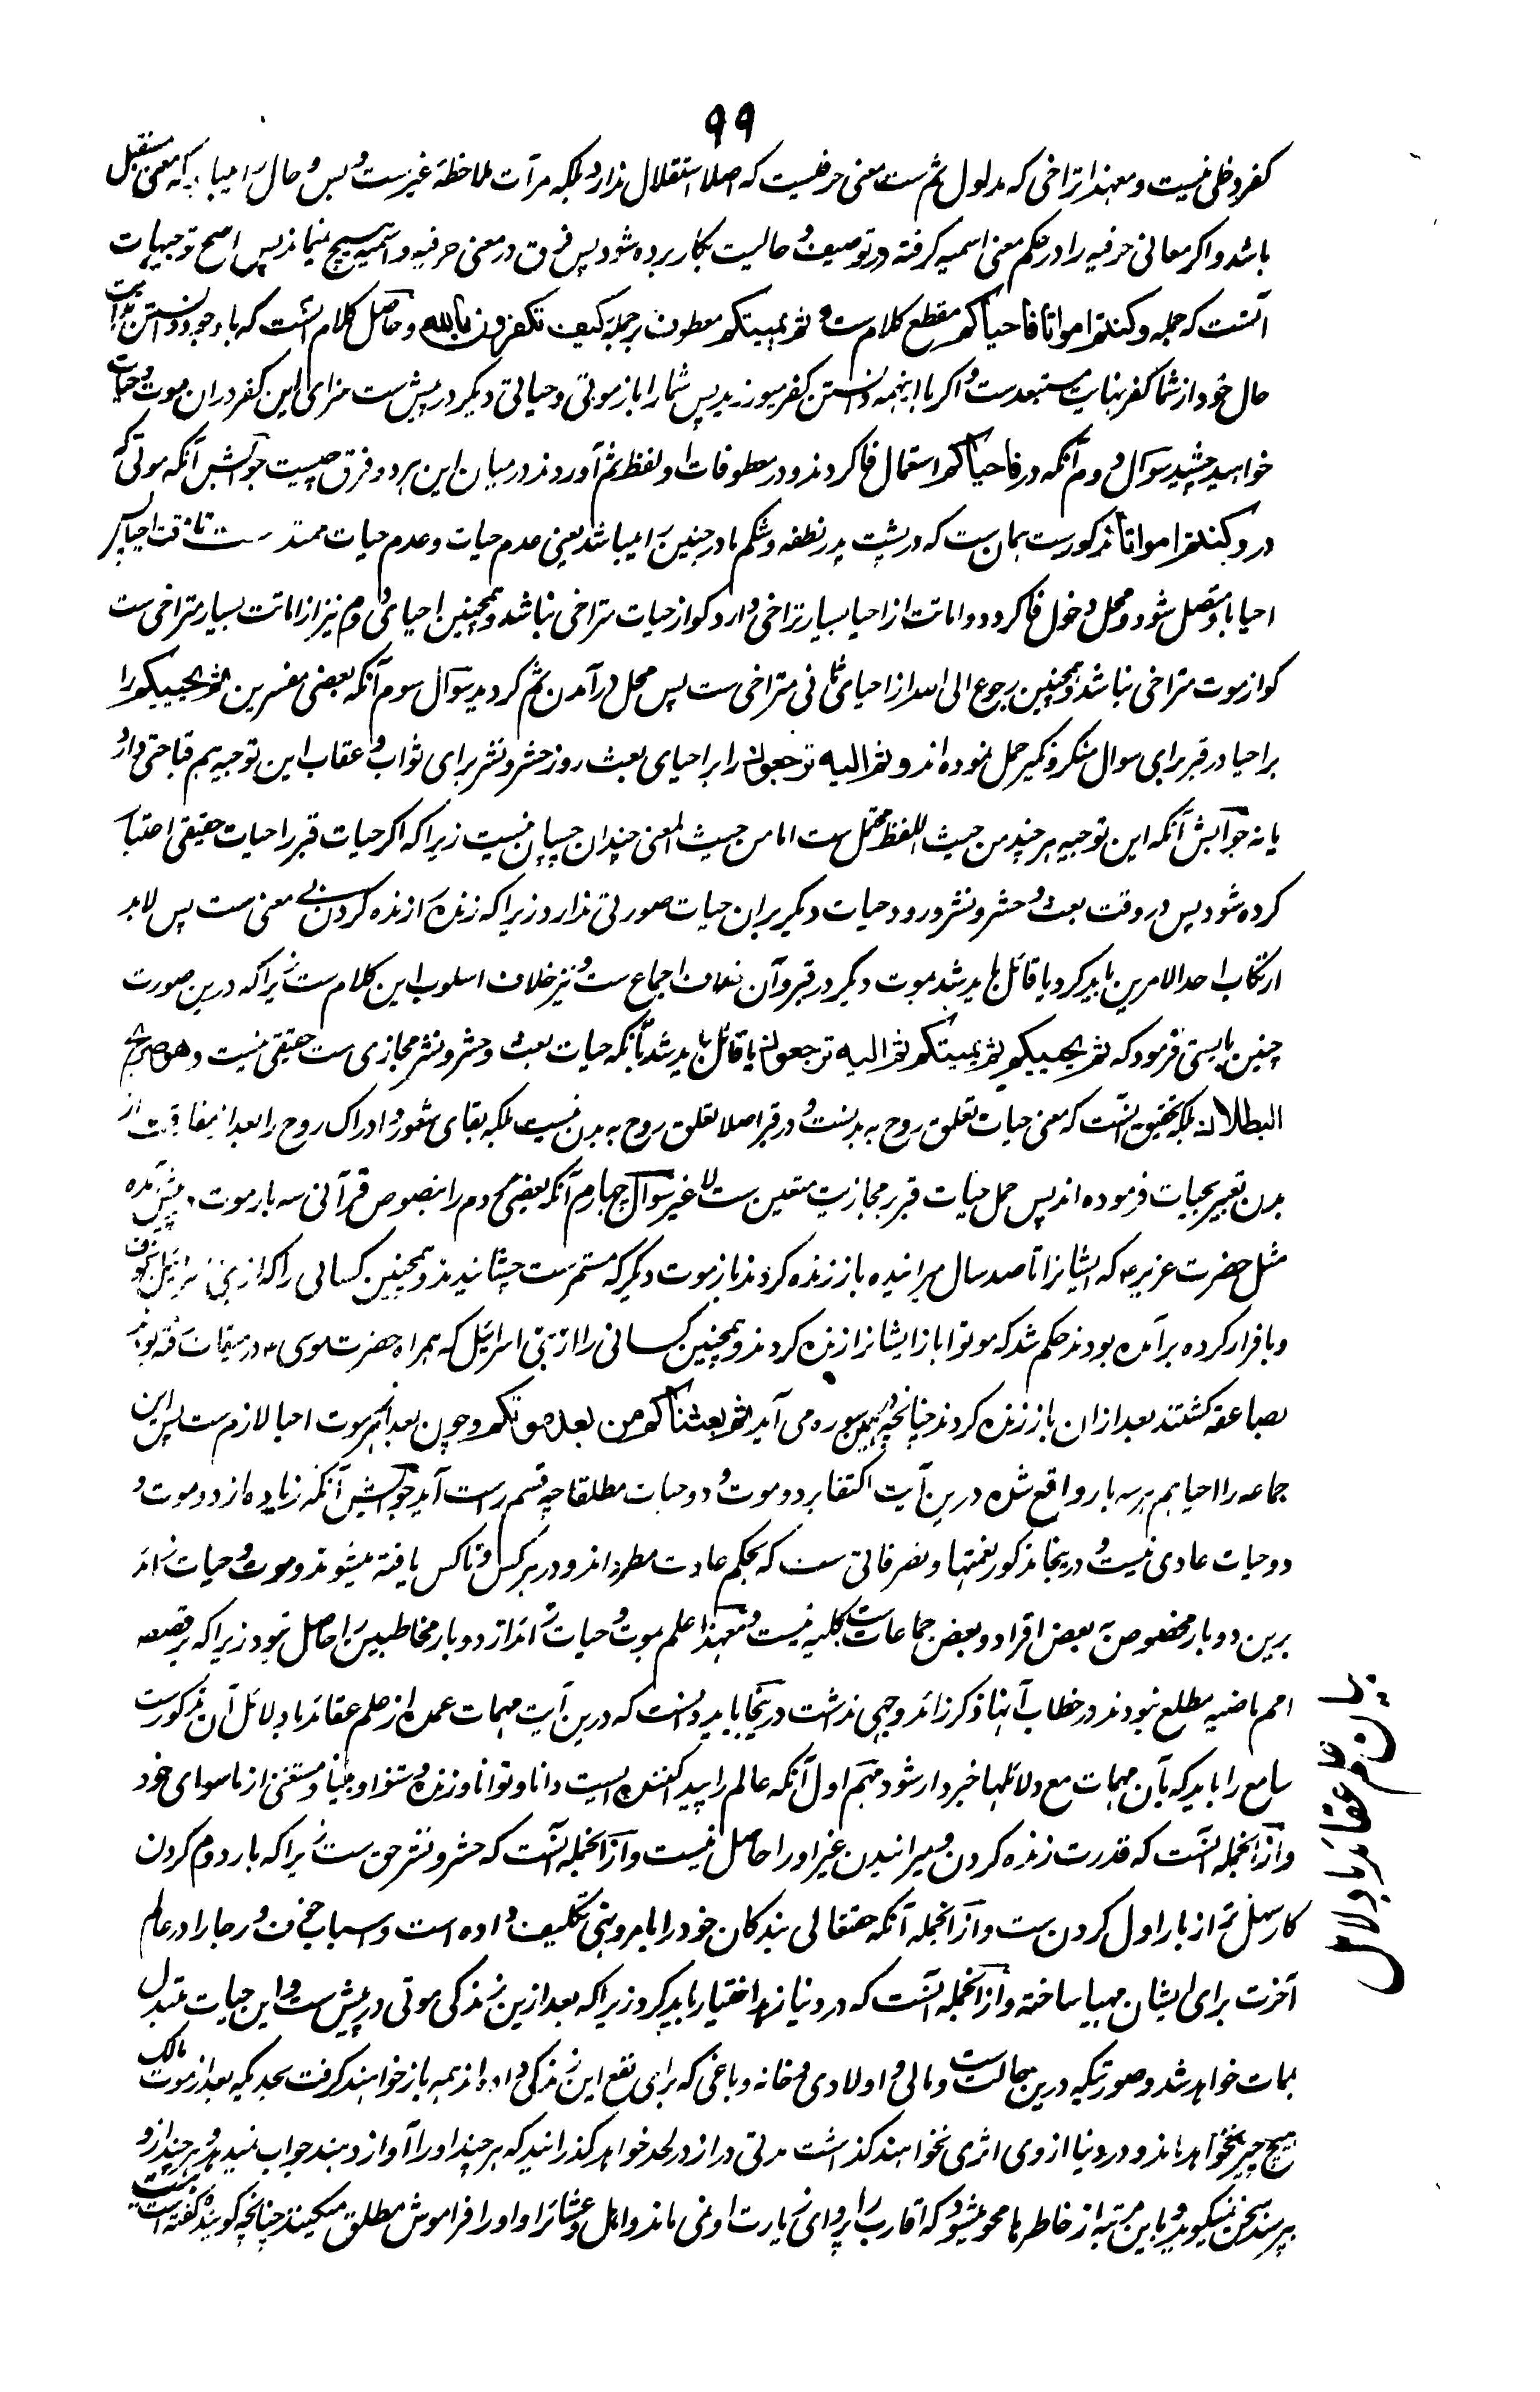 ۹۹
کفر دخلی نیست و معهذا تراخی که مدلول ثم ست معنی حرفیست که اصلا استقلال ندارد بلکه مرآت ملاحظهٔ غیرست و بس و حال را میباید که معنی مستقبل
باشد و اگر معانی حرفیه را در حکم معنی اسمیه گرفته در توصیف و حالیت بکار برده شود پس فرق در معنی حرفیه و اسمیه هیچ نمیماند پس اصح توجیهات
آنست که جمله وکنتم امواتا فاحیاکم مقطع کلام ست و ثم یمیتکم معطوف بر جملهٔ کیف تکفرون بالله و حاصل کلام آنست که با وجود دانستن
حال خود از شما کفر بنهایت مستبعدست و اگر با اینهمه دانستن کفر میورزید پس شما را باز موتی و حیاتی دیگر در پیش ست سزای این کفر دران موت و حیات
خواهید چشید سوال دوم آنکه در فاحیاکم استعمال فا کردند و در معطوفات او لفظ ثم آوردند در میان این هر دو فرق چیست جوابش آنکه موتی که
در وکنتم امواتا مذکورست همان ست که در پشت پدر نطفه و شکم مادر جنین را میباشد یعنی عدم حیات و عدم حیات ممتد ست تا وقت احیا پس
احیا باو متصل شود و محل دخول فا گردد و اماتت از احیا بسیار تراخی دارد گو از حیات متراخی نباشد و همچنین احیای دوم نیز از اماتت بسیار متراخی ست
گو از موت متراخی نباشد و همچنین رجوع الی الله از احیای ثانی متراخی ست پس محل درآمدن ثم گردید سوال سوم آنکه بعضی مفسرین ثم یحییکم را
بر احیا در قبر برای سوال منکر و نکیر حمل نموده اند و ثم الیه ترجعون را بر احیای بعث روز حشر و نشر برای ثواب و عقاب این توجیه هم قباحتی دارد
یا نه جوابش آنکه این توجیه هر چند من حیث اللفظ محتمل ست اما من حیث المعنی چندان چسپان نیست زیرا که اگر حیات قبر را حیات حقیقی اعتبار
کرده شود پس در وقت بعث و حشر و نشر ورود حیات دیگر بران حیات صورتی ندارد زیرا که زنده را زنده کردن بی معنی ست پس لابد
ارتکاب احد الامرین باید کرد یا قائل باید شد بموت دیگر در قبر و آن خلاف اجماع ست و نیز خلاف اسلوب این کلام ست زیرا که درین صورت
چنین بایستی فرمود که ثم یحییکم ثم یمیتکم ثم الیه ترجعون یا قائل باید شد بآنکه حیات بعث و حشر و نشر مجازی ست حقیقی نیست و هو صریح
البطلان بلکه تحقیق آنست که معنی حیات تعلق روح به بدنست و در قبر اصلا تعلق روح به بدن نیست بلکه بقای شعور و ادراک روح را بعد از مفارقت از
بدن تعبیر بحیات فرموده اند پس حمل حیات قبر بر مجازیت متعین ست لا غیر سوال چهارم آنکه بعضی مردم را بنصوص قرآنی سه بار موت پیش آمده
مثل حضرت عزیر ع که ایشانرا تا صد سال میرانیده باز زنده کردند باز موت دیگر که مستمرست چشانیدند و همچنین کسانی را که از بنی اسرائیل خوف
وبا فرار کرده برآمده بودند حکم شد که موتوا باز ایشانرا زنده کردند و همچنین کسانی را از بنی اسرائیل که همراه حضرت موسی ع در میقات رفته بودند
بصاعقه کشتند بعد ازان باز زنده کردند چنانچه در همین سوره می آید ثم بعثناکم من بعد موتکم و چون بعد از هر موت احیا لازم ست پس این
جماعه را احیا هم هر سه بار واقع شده درین آیت اکتفا بر دو موت و دو حیات مطلقا چه قسم راست آید جوابش آنکه زیاده از دو موت و
دو حیات عادی نیست و درینجا مذکور نعمتها و تصرفاتی ست که بحکم عادت مطرد اند و در هر کس و ناکس یافته میشوند و موت و حیات زائد
برین دو بار مخصوص به بعض افراد و بعض جماعات ست کلیه نیست و معهذا علم بموت و حیات زائد از دو بار مخاطبین را حاصل نبود زیرا که بر قصه
امم ماضیه مطلع نبودند در خطاب آنها ذکر زائد وجهی نداشت درینجا باید دانست که درین آیت مهمات عمده از علم عقائد با دلائل آن مذکورست
سامع را باید که بآن مهمات مع دلائلها خبردار شود مهم اول آنکه عالم را پیدا کننده ایست دانا و توانا و زنده و شنوا و بینا و مستغنی از ما سوای خود
و ازانجمله آنست که قدرت زنده کردن و میرانیدن غیر او را حاصل نیست و ازانجمله آنست که حشر و نشر حق ست زیرا که بار دوم کردن
کار سهل تر از بار اول کردن ست و ازانجمله آنکه حقتعالی بندگان خود را بامر و نهی تکلیف داده است و اسباب خوف و رجا را در عالم
آخرت برای ایشان مهیا ساخته و ازانجمله آنست که در دنیا زهد اختیار باید کرد زیرا که بعد ازین زندگی موتی در پیش ست و این حیات متبدل
بمات خواهد شد و صورتیکه درین حالت ست و مالی و اولادی و خانه و باغی که برای نفع این زندگی داده اند همه باز خواهند گرفت بحدیکه بعد از موت مالک
هیچ چیز نخواهد ماند و در دنیا از وی اثری نخواهند گذاشت مدتی دراز در لحد خواهد گذرانید که هر چند او را آواز دهند جواب نمیدهد و هر چند ازو
بپرسند سخن نمیگوید و باین مرتبه از خاطرها محو میشود که اقارب را پروای زیارت او نمی ماند و اهل و عشائر او او را فراموش مطلق میکنند چنانچه گوینده گفته است
بیان علم عقائد با دلائل